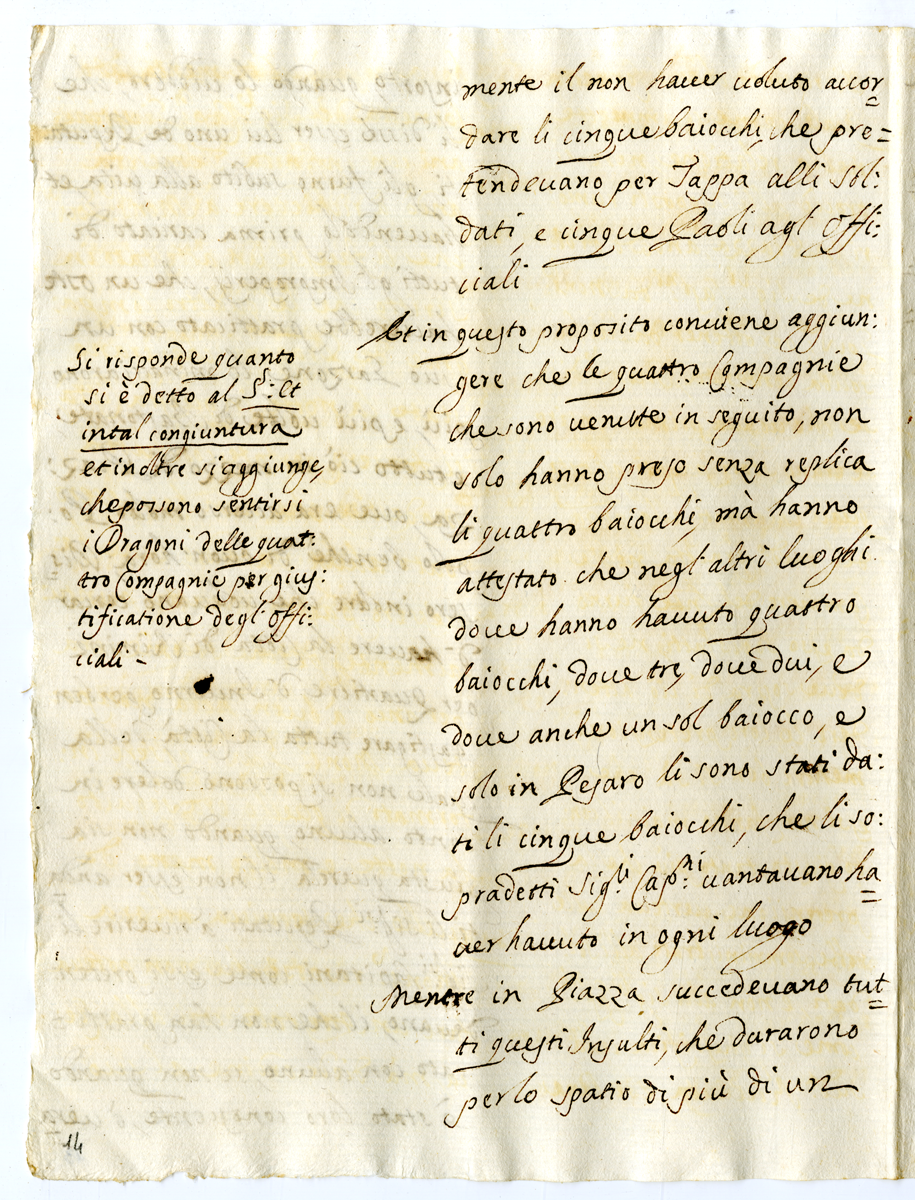 mente il non hauer uoluto accor=
dare li cinque baiocchi, che pre=
tendeuano per Tappa alli sol:
dati, e cinque Paoli agl' Offi:
ciali
Et in questo proposito conuiene aggiun:
gere che le quattro Compagnie
che sono uenute in seguito, non
solo hanno preso senza replica
li quattro baiocchi, mà hanno
attestato che negl' altri luoghi
doue hanno hauuto quattro
baiocchi, doue tre, doue dui, e
doue anche un sol baiocco, e
solo in Pesaro li sono stati da:
ti li cinque baiocchi, che li so:
pradetti Sig.ri Cap.ni uantauano ha=
uer hauuto in ogni luogo
Mentre in Piazza succedeuano tut=
ti questi Insulti, che durarono
per lo spatio di più di un
Si risponde quanto
si è detto al §: Et
in tal congiuntura
et inoltre si aggiunge,
che possono sentirsi
i Dragoni delle quat:
tro Compagnie per gius:
tificatione degl' Offi:
ciali -
14